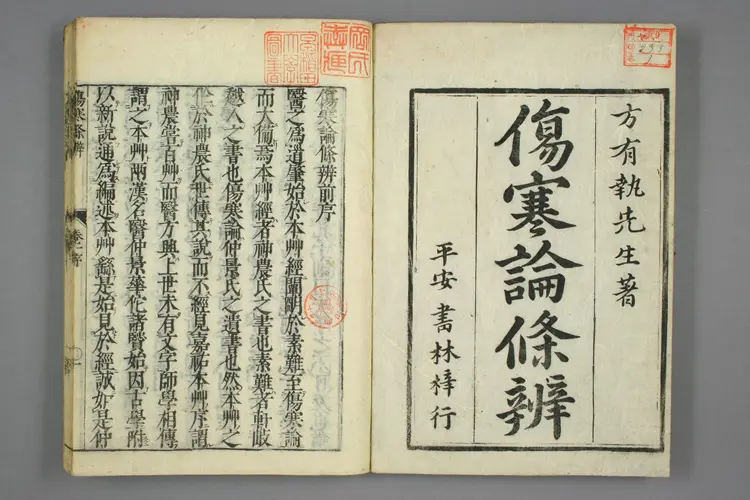 方有執先生著
傷寒論條辨
平安書林梓行
傷寒論條辨前序
醫之爲道肇始於本艸經闡明於素難至傷寒論
而大備焉本艸經者神農氏之書也素難者軒岐
越人之書也傷寒論仲景氏之遺書也然本艸之
作於神農氏世傳其說而不經見嘉祐本艸序謂
神農嘗百艸而醫方興上世未有文字師學相傳
謂之本艸兩漢名醫仲景華佗諸醫始因古學附
以新說通爲編述本艸繇是始見於經誠如是仲
傷寒條辨
序